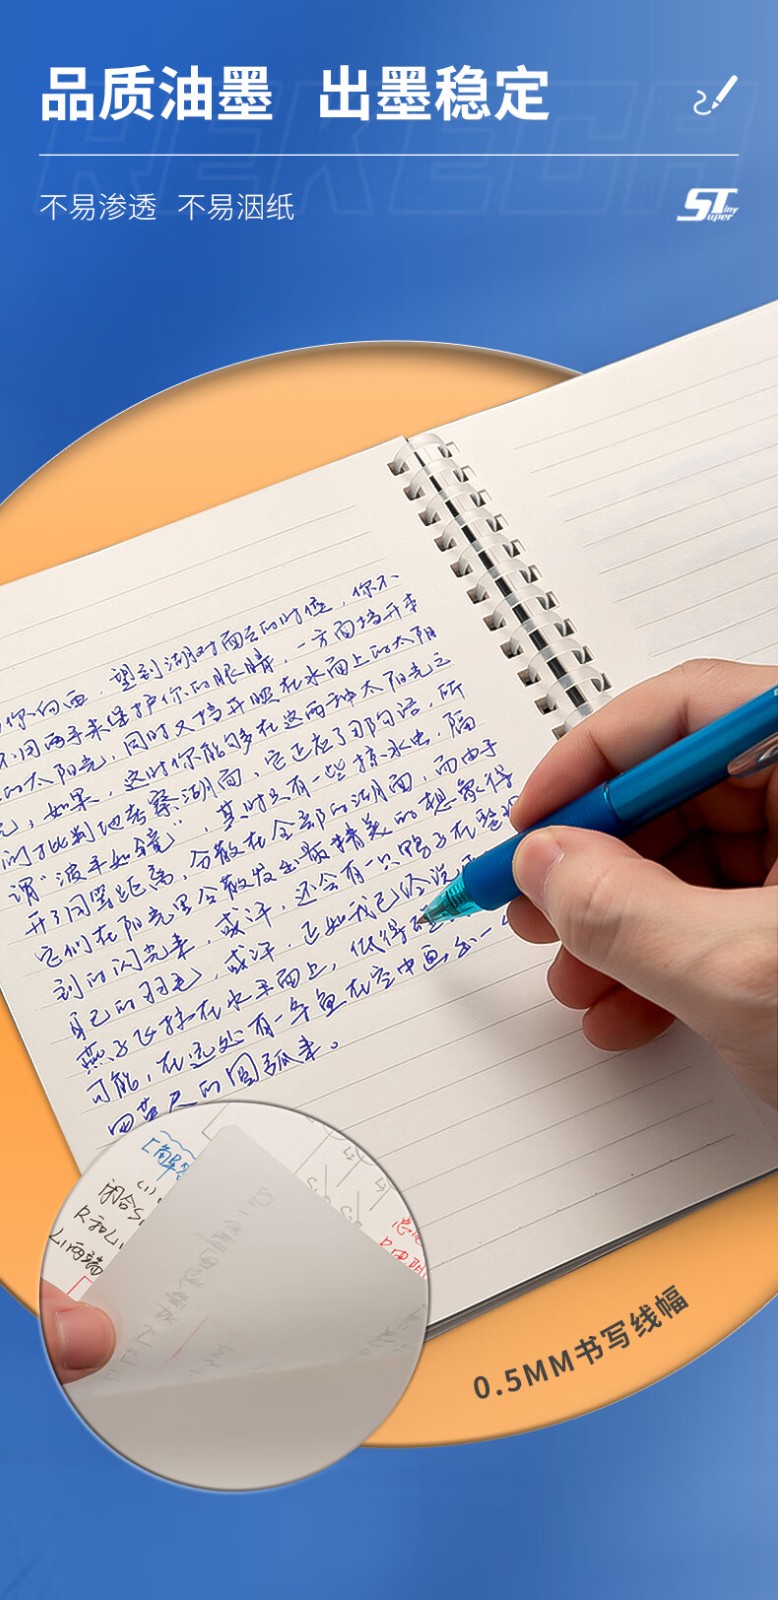 品质油墨 出墨稳定
不易渗透 不易洇纸
STiny
Super
你向西，望到湖对面去的时候，你不
不用两手来保护你的眼睛，一方面挡开本
的太阳光，同时又挡开照在水面上的太阳
光，如果，这时你能够在这两种太阳光之
们批判地考察湖面，它正应了那句话，所
谓“波平如镜”，其时只有一些掠水虫，隔
开了同等距离，分散在全部的湖面，而由于
它们在阳光里会散发出最精美的想象得
到的闪光来，或许，还会有一只鸭子在整理
自己的羽毛，或许，正如我已经说
燕子飞掠在水平面上，低得
可能，在远处有一条鱼在空中画出一个
四英尺的圆弧来。
[解
(1)
闭合S
R和L1
L1两端
0.5MM书写线幅